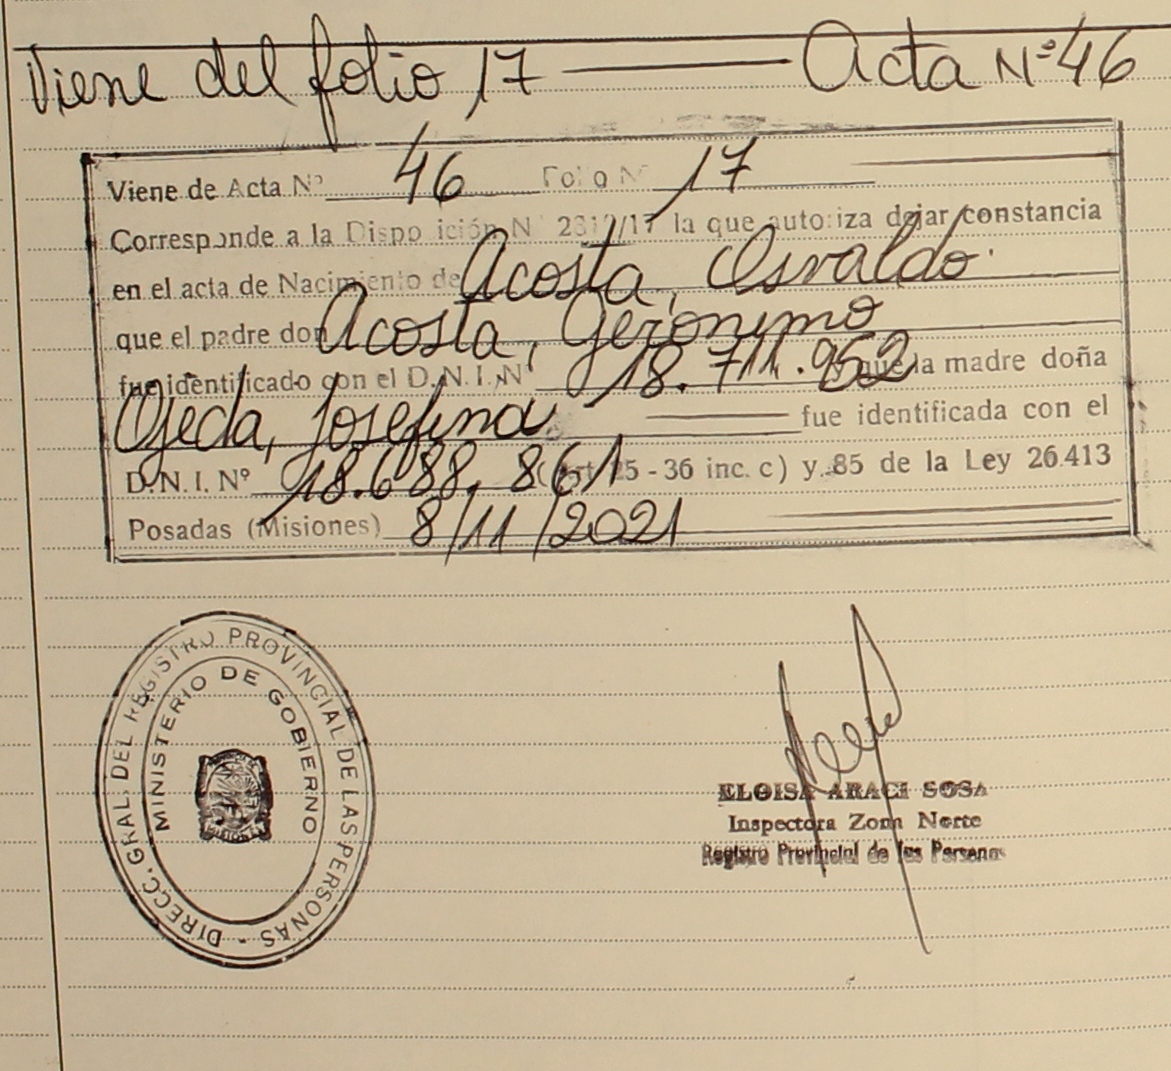 Viene del folio 17 Acta Nº 46
Viene de Acta Nº 46 Folio Nº 17
Corresponde a la Disposición Nº 2312/17 la que autoriza dejar constancia
en el acta de Nacimiento de Acosta, Osvaldo.
que el padre don Acosta, Gerónimo
fue identificado con el D.N.I. Nº 18.711.952 y que la madre doña
Ojeda, Josefina fue identificada con el
D.N.I. Nº 18.688.861 (art. 25 - 36 inc. c) y 85 de la Ley 26.413
Posadas (Misiones) 8/11/2021
DIRECC. GRAL. DEL REGISTRO PROVINCIAL DE LAS PERSONAS -
MINISTERIO DE GOBIERNO
MISIONES
ELOISA ARACI SOSA
Inspectora Zona Norte
Registro Provincial de las Personas